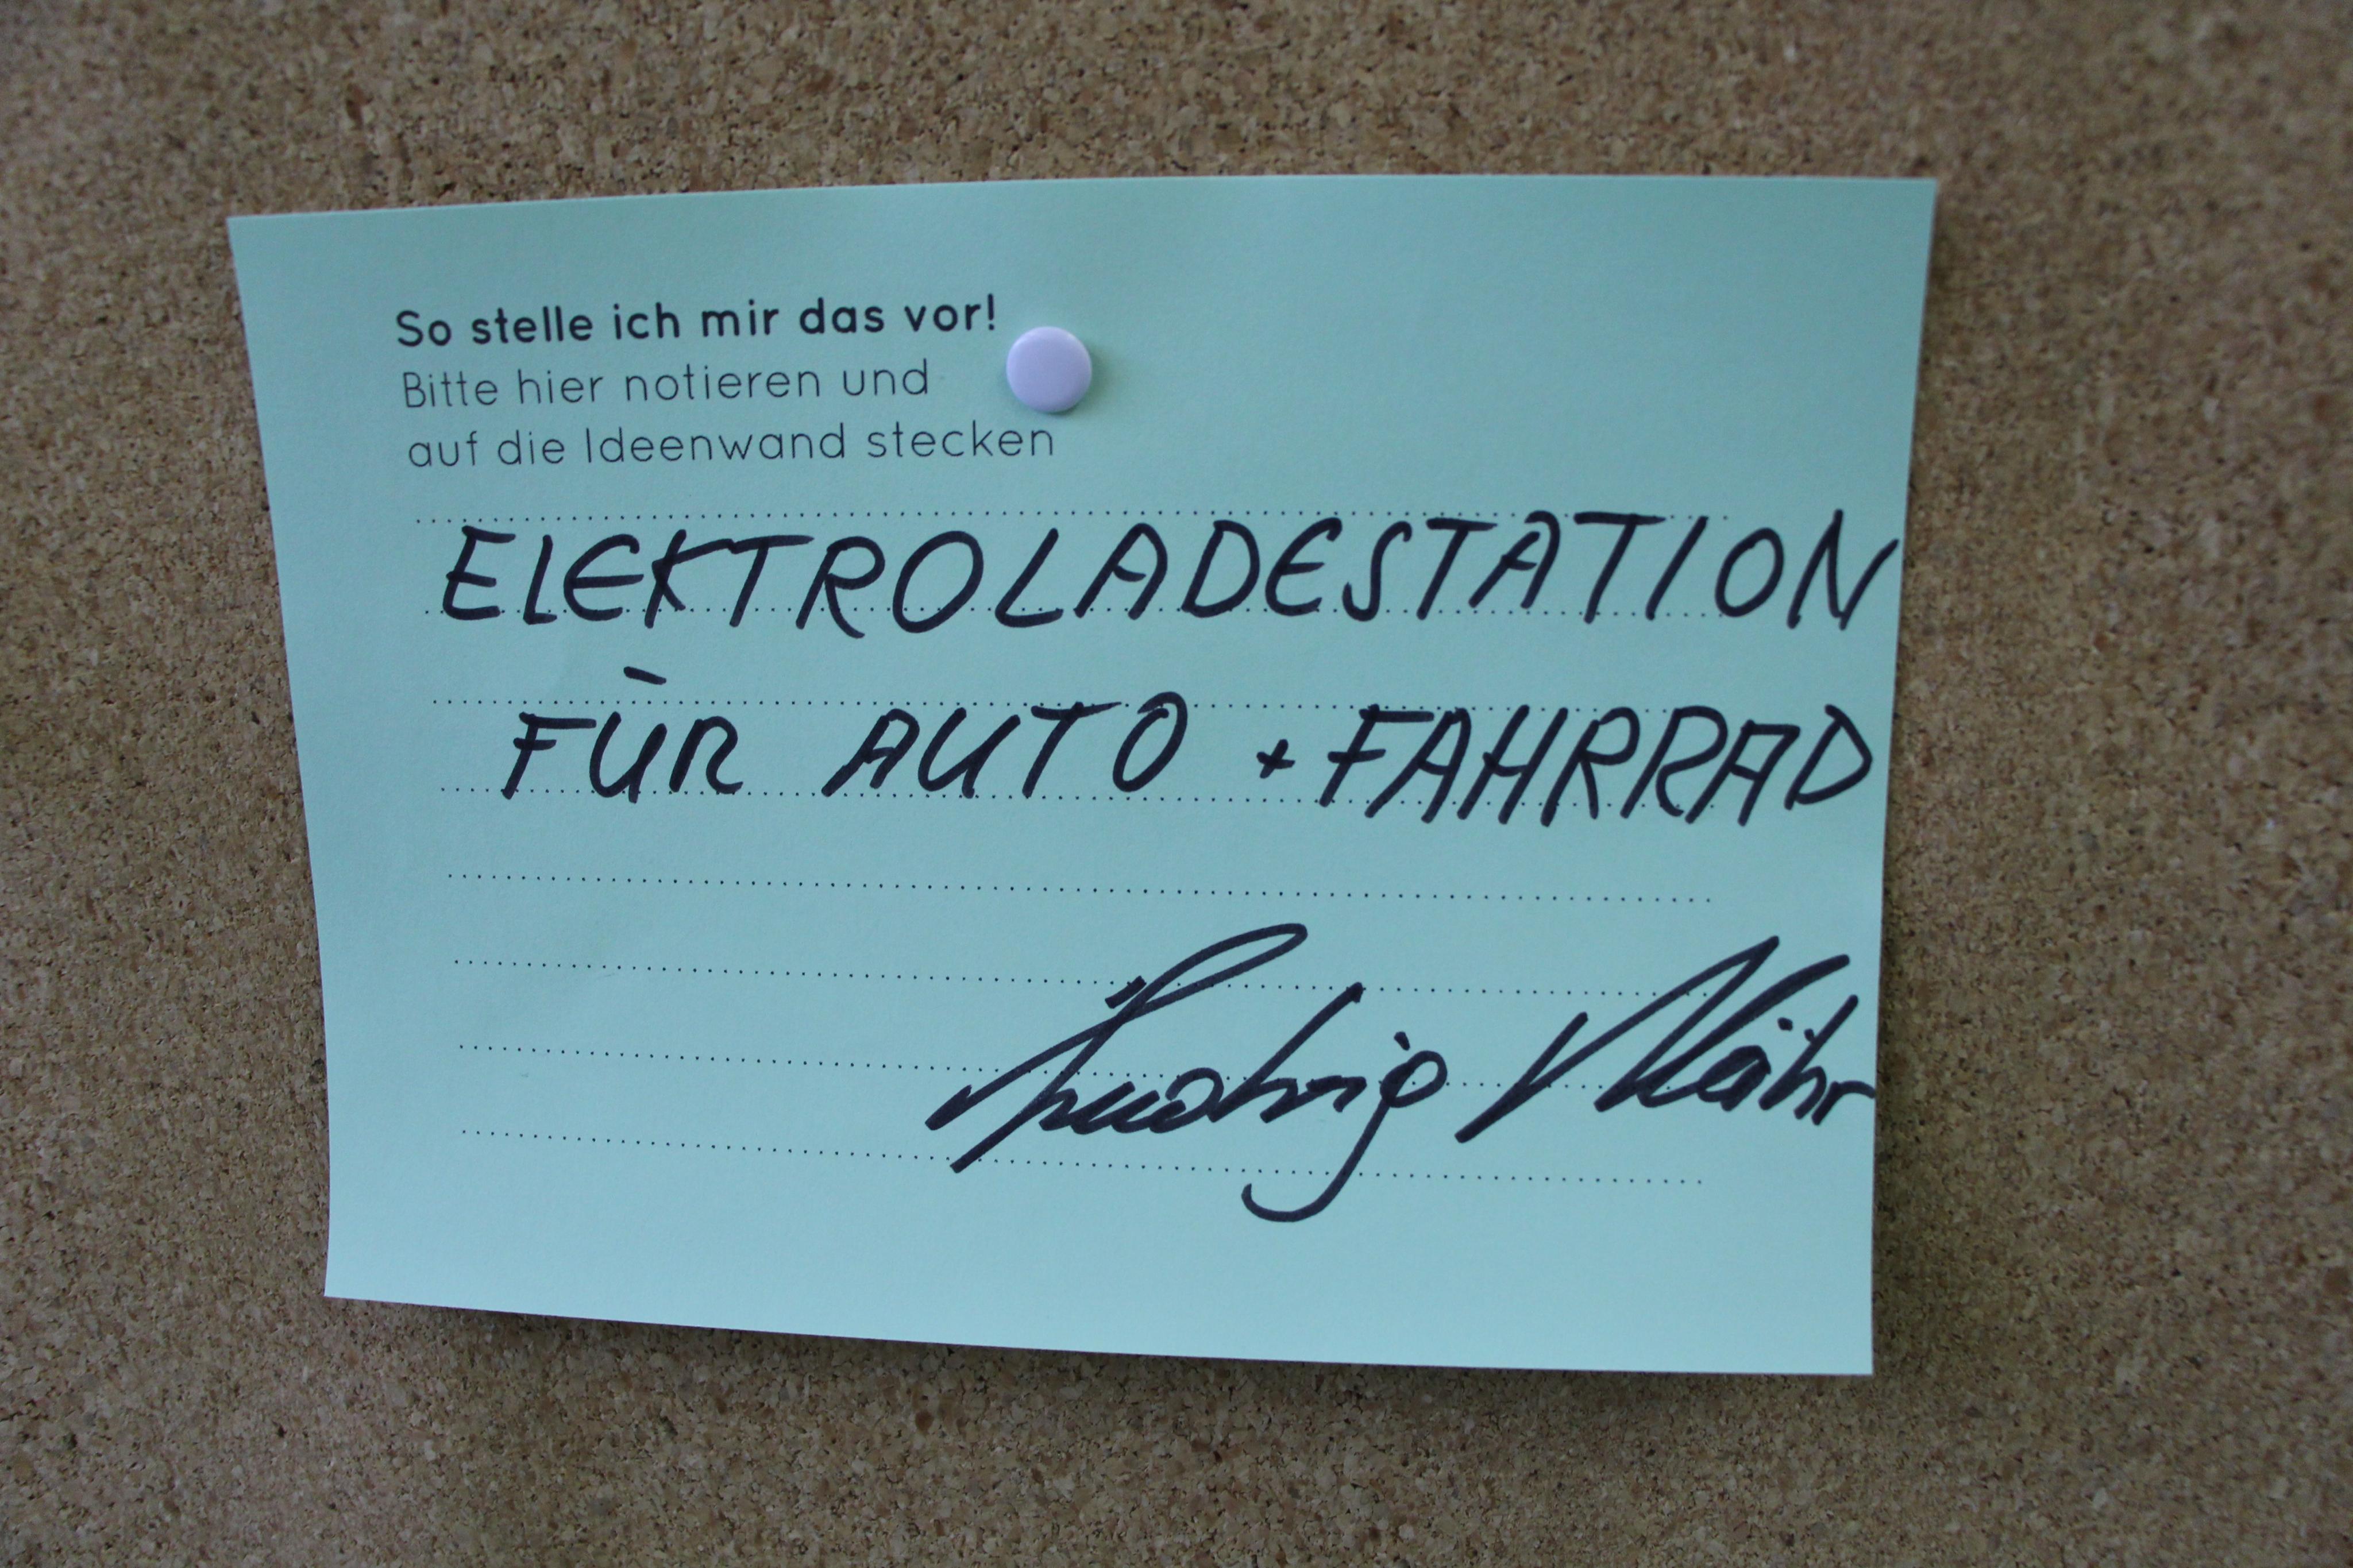 So stelle ich mir das vor!
Bitte hier notieren und
auf die Ideenwand stecken
ElEKTROLADESTATION
FÜR AUTO + FAHRRAD
Ludwig